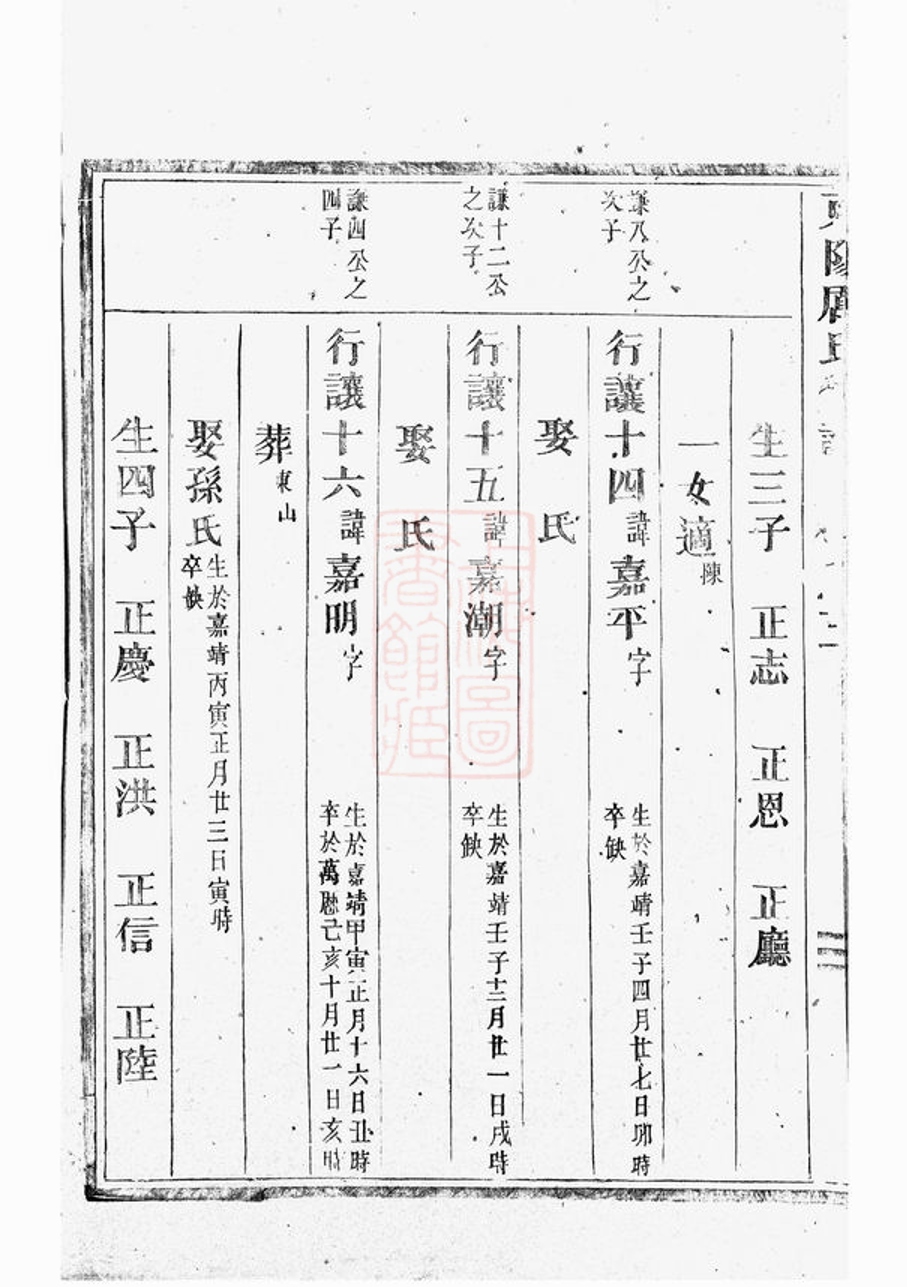 生三子 正志 正恩 正廳
一女適陳
謙八公之
次子
行讓十四諱嘉平字
生於嘉靖壬子四月廿七日卯時
卒缺
娶 氏
謙十二公
之次子
行讓十五諱嘉潮字
生於嘉靖壬子十二月廿一日戌時
卒缺
娶 氏
謙四公之
四子
行讓十六諱嘉明字
生於嘉靖甲寅正月十六日丑時
卒於萬曆己亥十月廿一日亥時
葬東山
娶孫氏
生於嘉靖丙寅正月廿三日寅時
卒缺
生四子 正慶 正洪 正信 正陸